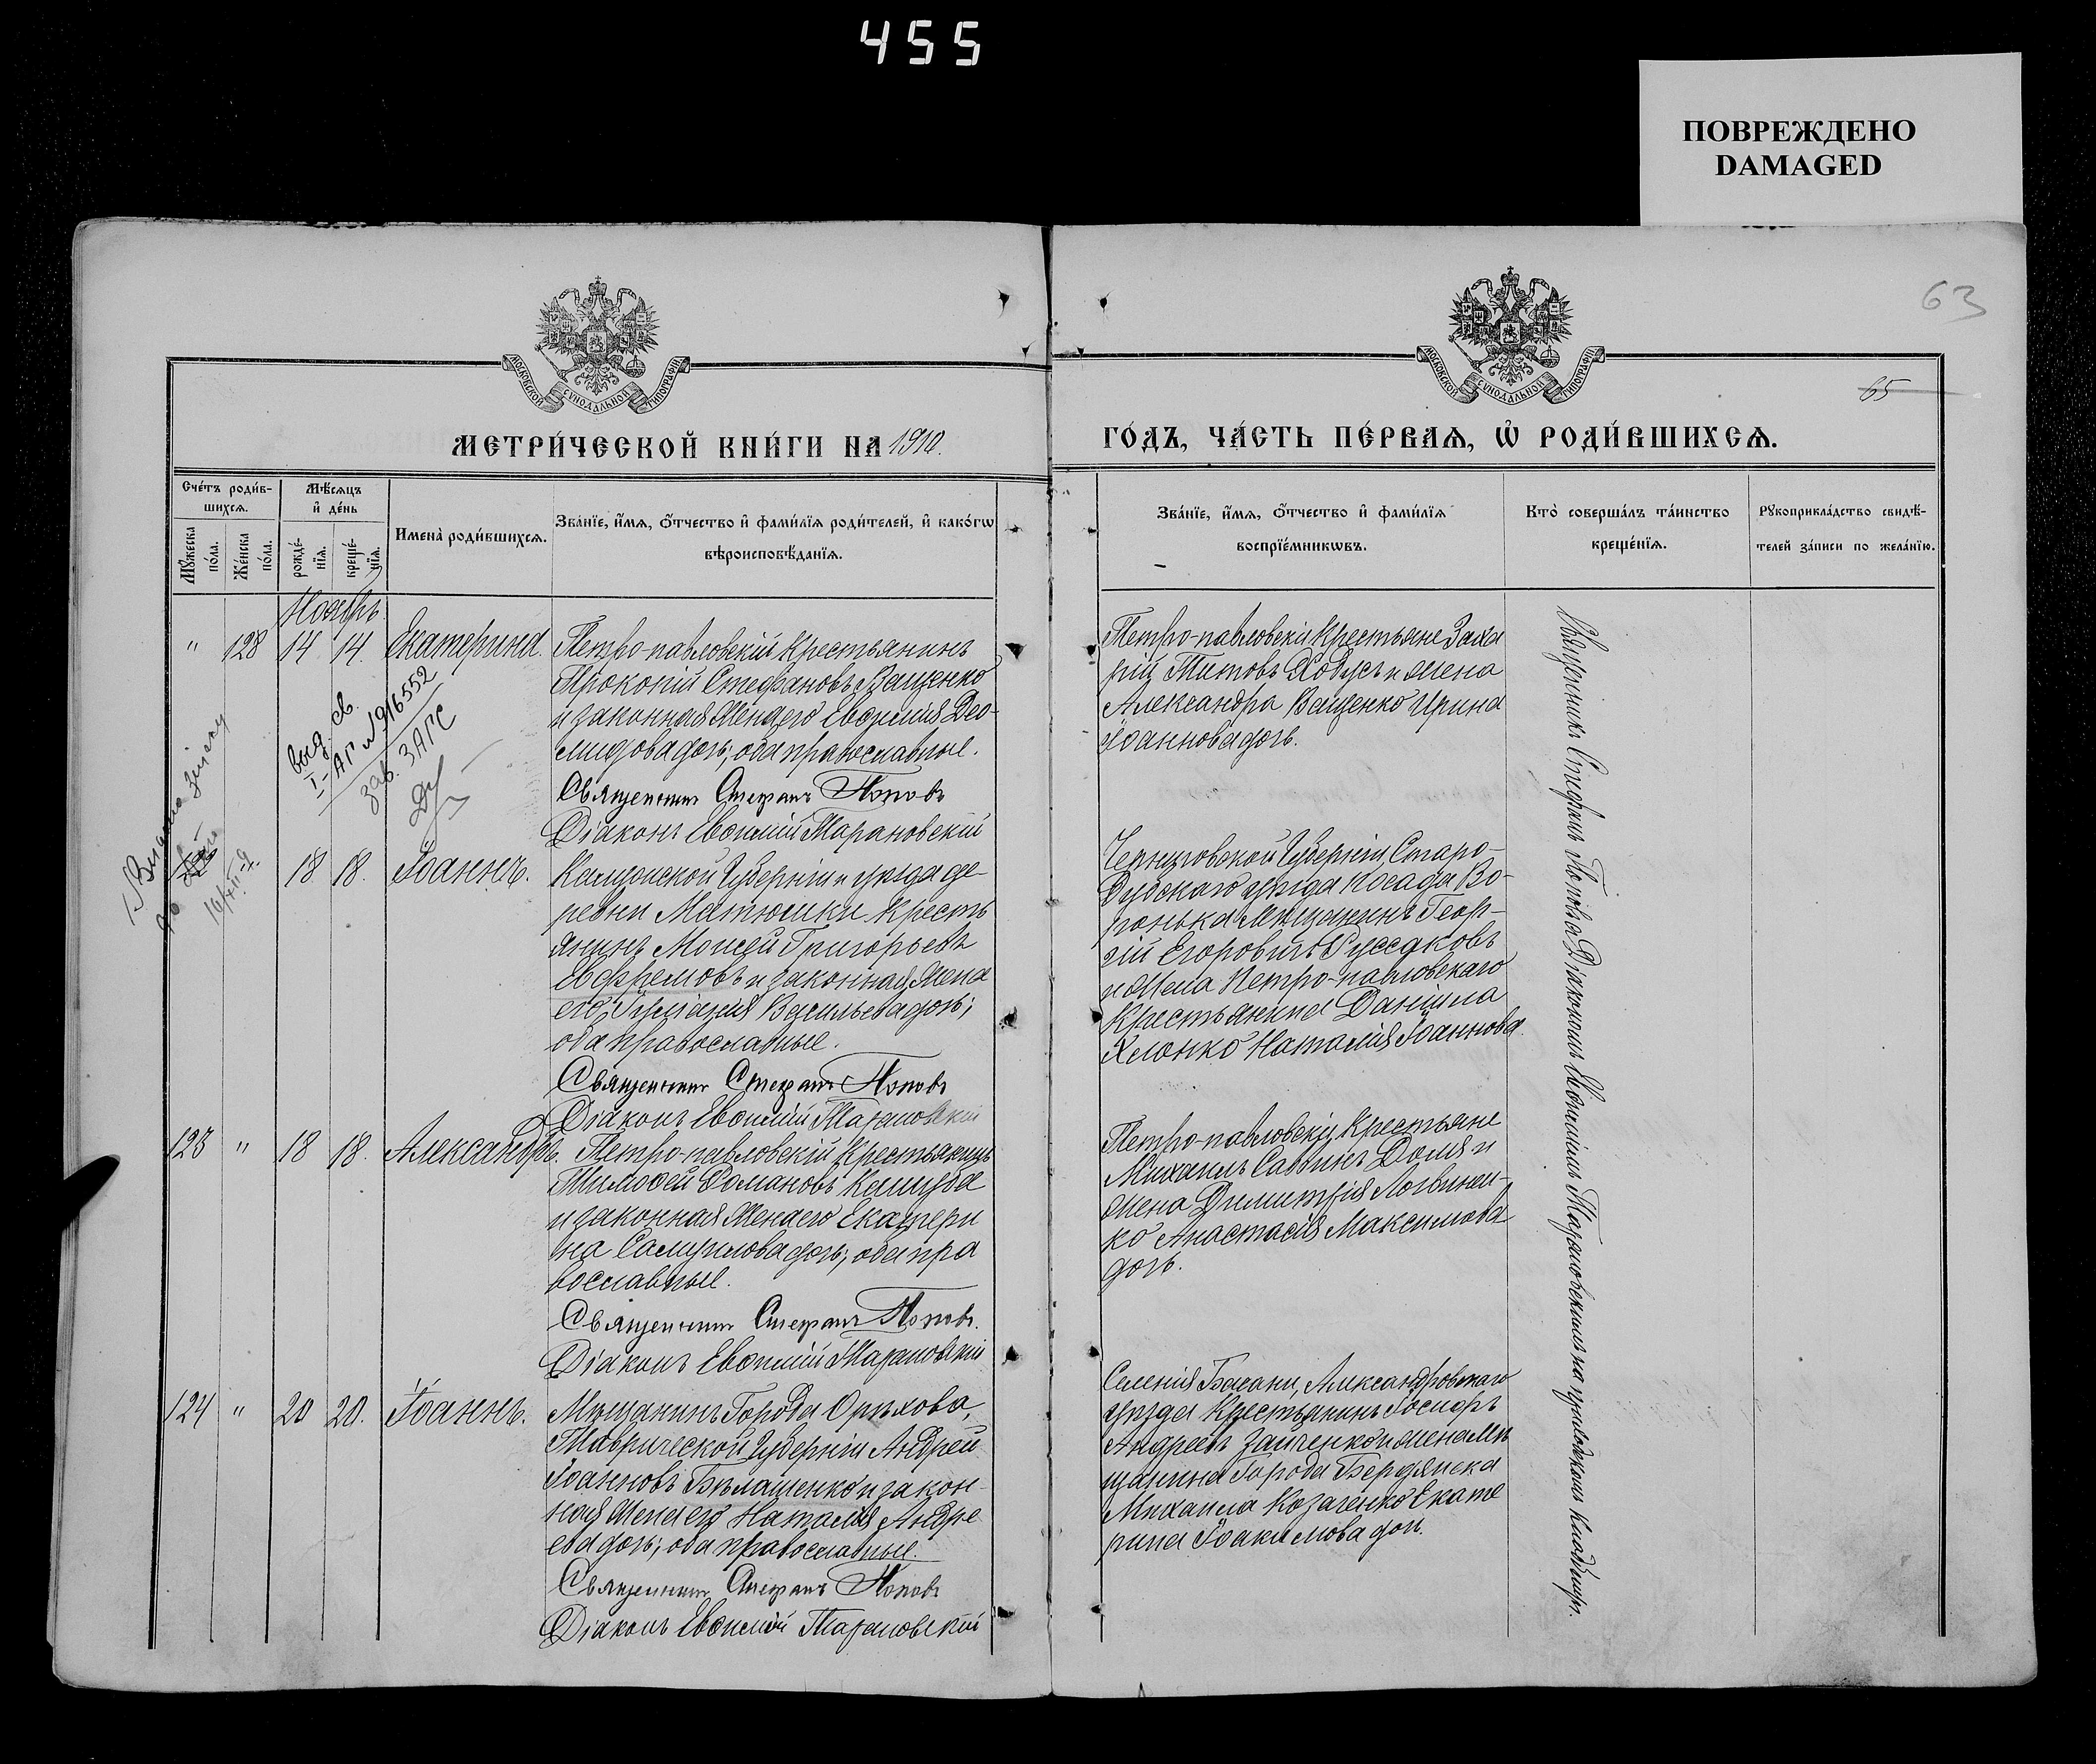 455
ПОВРЕЖДЕНО
DAMAGED
63
65
МОСКОВСКОЙ СѴНОДАЛЬНОЙ ТИПОГРАФІИ
МОСКОВСКОЙ СѴНОДАЛЬНОЙ ТИПОГРАФІИ
МЕТРИ́ЧЕСКОЙ КНИ́ГИ НА 1910.
ГО́ДЪ, ЧА́СТЬ ПЕ́РВАѦ, Ѡ҆ РОДИ́ВШИХСѦ.
Сче́тъ роди́в-
шихсѧ.
Мꙋ́жеска по́ла.
Же́нска по́ла.
Мѣ́сѧцъ
и҆ де́нь
рожде́-
нїѧ.
креще́-
нїѧ.
Имена̀ роди́вшихсѧ.
Зва́нїе, и҆́мѧ, ѻ҆́тчество и҆ фами́лїѧ роди́телей, и҆ како́гѡ
вѣроисповѣ́данїѧ.
Зва́нїе, и҆́мѧ, ѻ҆́тчество и҆ фами́лїѧ
воспрїе́мникѡвъ.
Кто̀ соверша́лъ та́инство
креще́нїѧ.
Рꙋкоприкла́дство свидѣ́-
телей за́писи по жела́нїю.
Ноябрь
" 128 14 14. Екатерина.
Петро-павловскій крестьянинъ
Прокопій Стефановъ Ващенко
и законная жена его Евфимія Дио-
мидова дочь; оба православные.
Священникъ Стефанъ Поповъ
Діаконъ Евѳимій Тарановскій
Петро-павловскіи крестьяне Заха
рій Титовъ Хобусъ и жена
Александра Ващенко Ирина
Іоаннова дочь.
выд. св.
I-АП №916552
зав. ЗАГС
18 18. Іоаннъ.
Калужской Губерніи и уѣзда де-
ревни Матюшки Кресть
янинъ Моисей Григорьевъ
Ефремовъ и законная жена
его Васильева дочь;
оба православные.
Священникъ Стефанъ Поповъ
Діаконъ Евѳимій Тарановскій
Черниговской Губерніи, Старо-
дубскаго уѣзда посада Во-
ронька мѣщанинъ Геор-
гій Егоровичъ Русаковъ
и жена Петро-павловскаго
крестьянина Даніила
Наталія Іоаннова
123 " 18 18. Александръ.
Петро-павловскій крестьянинъ
Тимоѳей Романовъ
и законная жена его Екатери
на Самуилова дочь; оба пра
вославные.
Священникъ Стефанъ Поповъ.
Діаконъ Евѳимій Тарановскій
Петро-павловскіи крестьяне
Михаилъ Саввинъ Доля и
жена Димитрія Логвинен-
ко Анастасія Максимова
дочь.
124 " 20 20. Іоаннъ.
Мѣщанинъ Города Орѣхова,
Таврической Губерніи Андрей
Іоанновъ Бѣлашенко и закон-
ная жена его Наталія Андре
ева дочь; оба православные.
Священникъ Стефанъ Поповъ
Діаконъ Евѳимій Тарановскій
Селенія Басани, Александровскаго
уѣзда крестьянинъ Іосифъ
Андреевъ Зайченко и жена мѣ
щанина Города Бердянска
Михаила Козаченко Екате
рина Іоакимова доч.
Священникъ Стефанъ Поповъ съ Діакономъ Евѳиміемъ Тарановскимъ